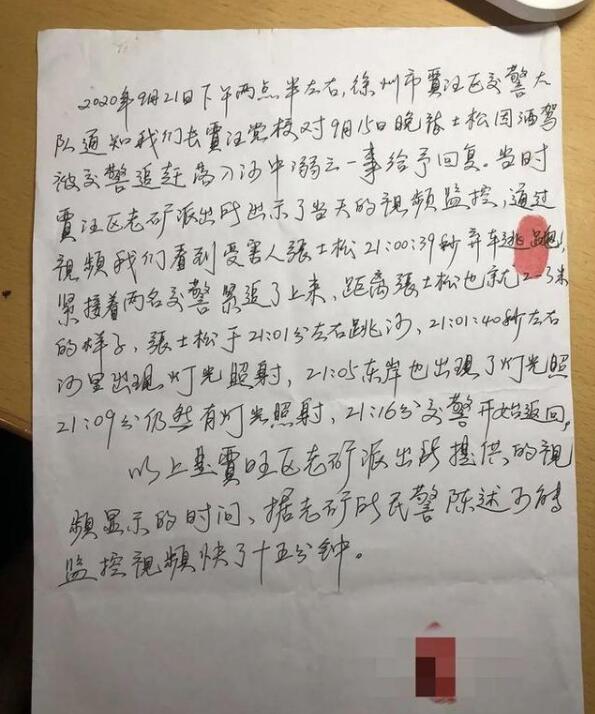 2020年9月21日下午两点半左右,徐州市贾汪区交警大
队通知我们去贾汪党校对9月15日晚张士松因酒驾
被交警追赶落入河中溺亡一事给予回复。当时
贾汪区老矿派出所出示了当天的视频监控,通过
视频我们看到受害人張士松21:00:39秒弃车逃跑,
紧接着两名交警紧追了上来,距离張士松也就2-3米
的样子,張士松于21:01分左右跳河,21:01:40秒左右
河里出现灯光照射,21:05东岸也出现了灯光照
21:09分仍然有灯光照射,21:16分交警开始返回。
以上是賈旺区老矿派出所提供的视
频显示的时间、据老矿所民警陈述
监控视频快了十五分钟。